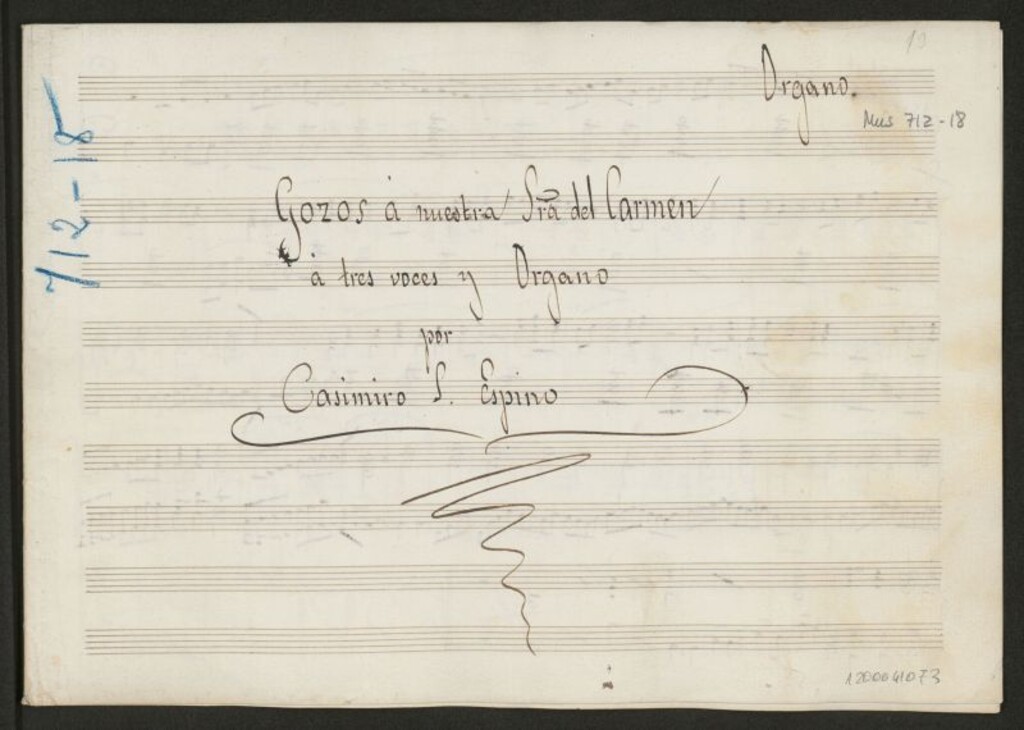 19
Organo.
Mus 712-18
712-18
Gozos á nuestra Sra del Carmen
á tres voces y Organo
por
Casimiro S. Espino
1200041073